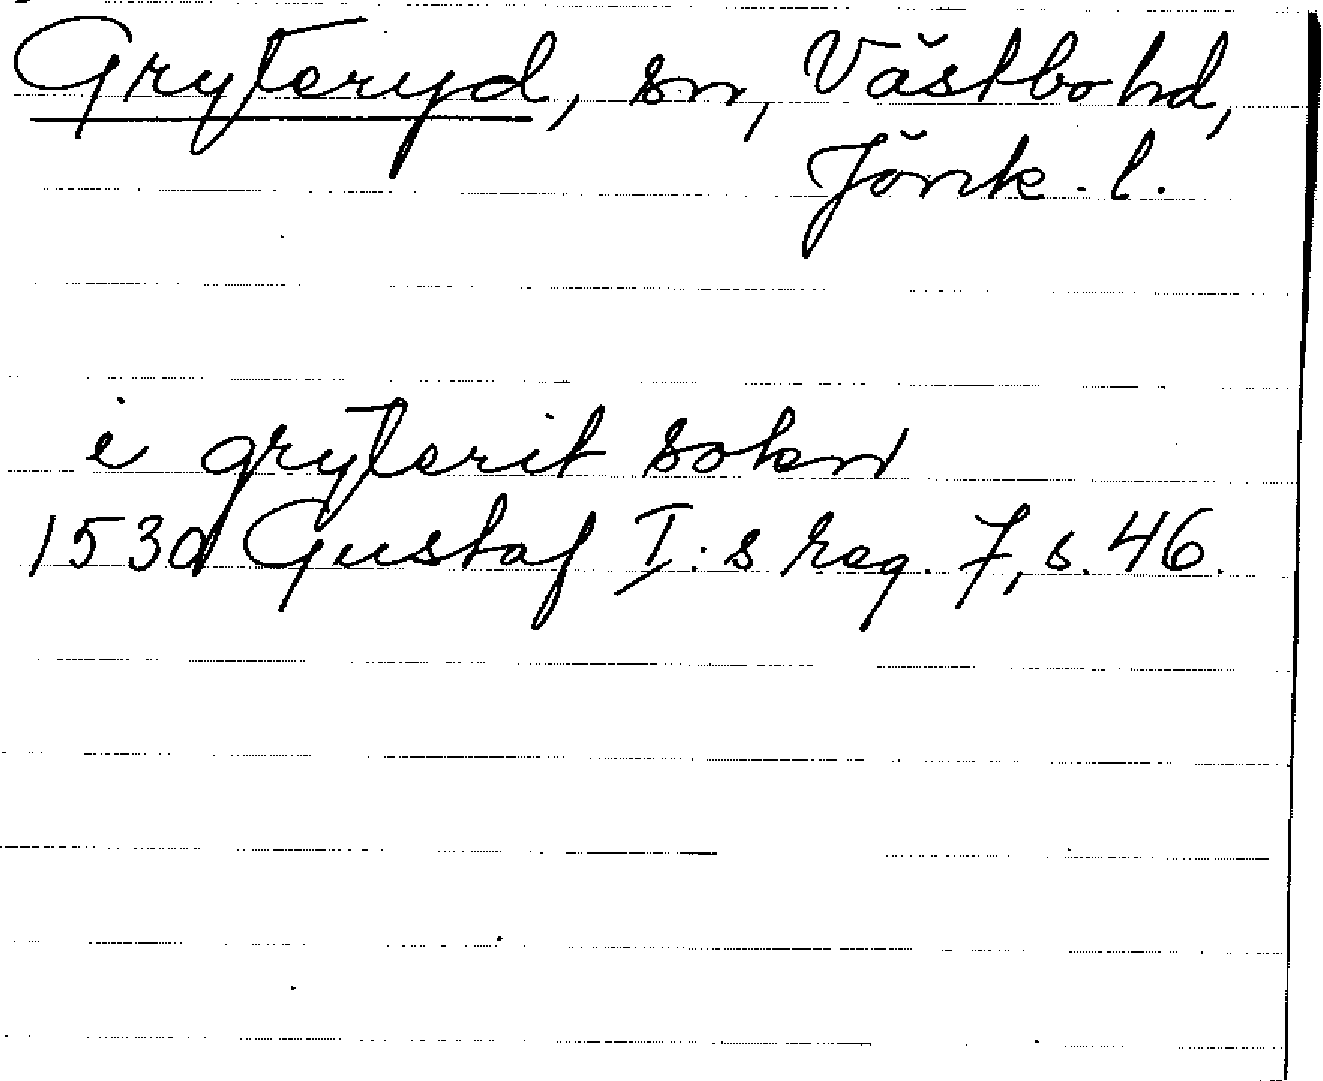 Gryteryd, sn, Västbo hd,
Jönk. l.
i gryterit sokn
1530 Gustaf I:s reg. 7, s. 46.